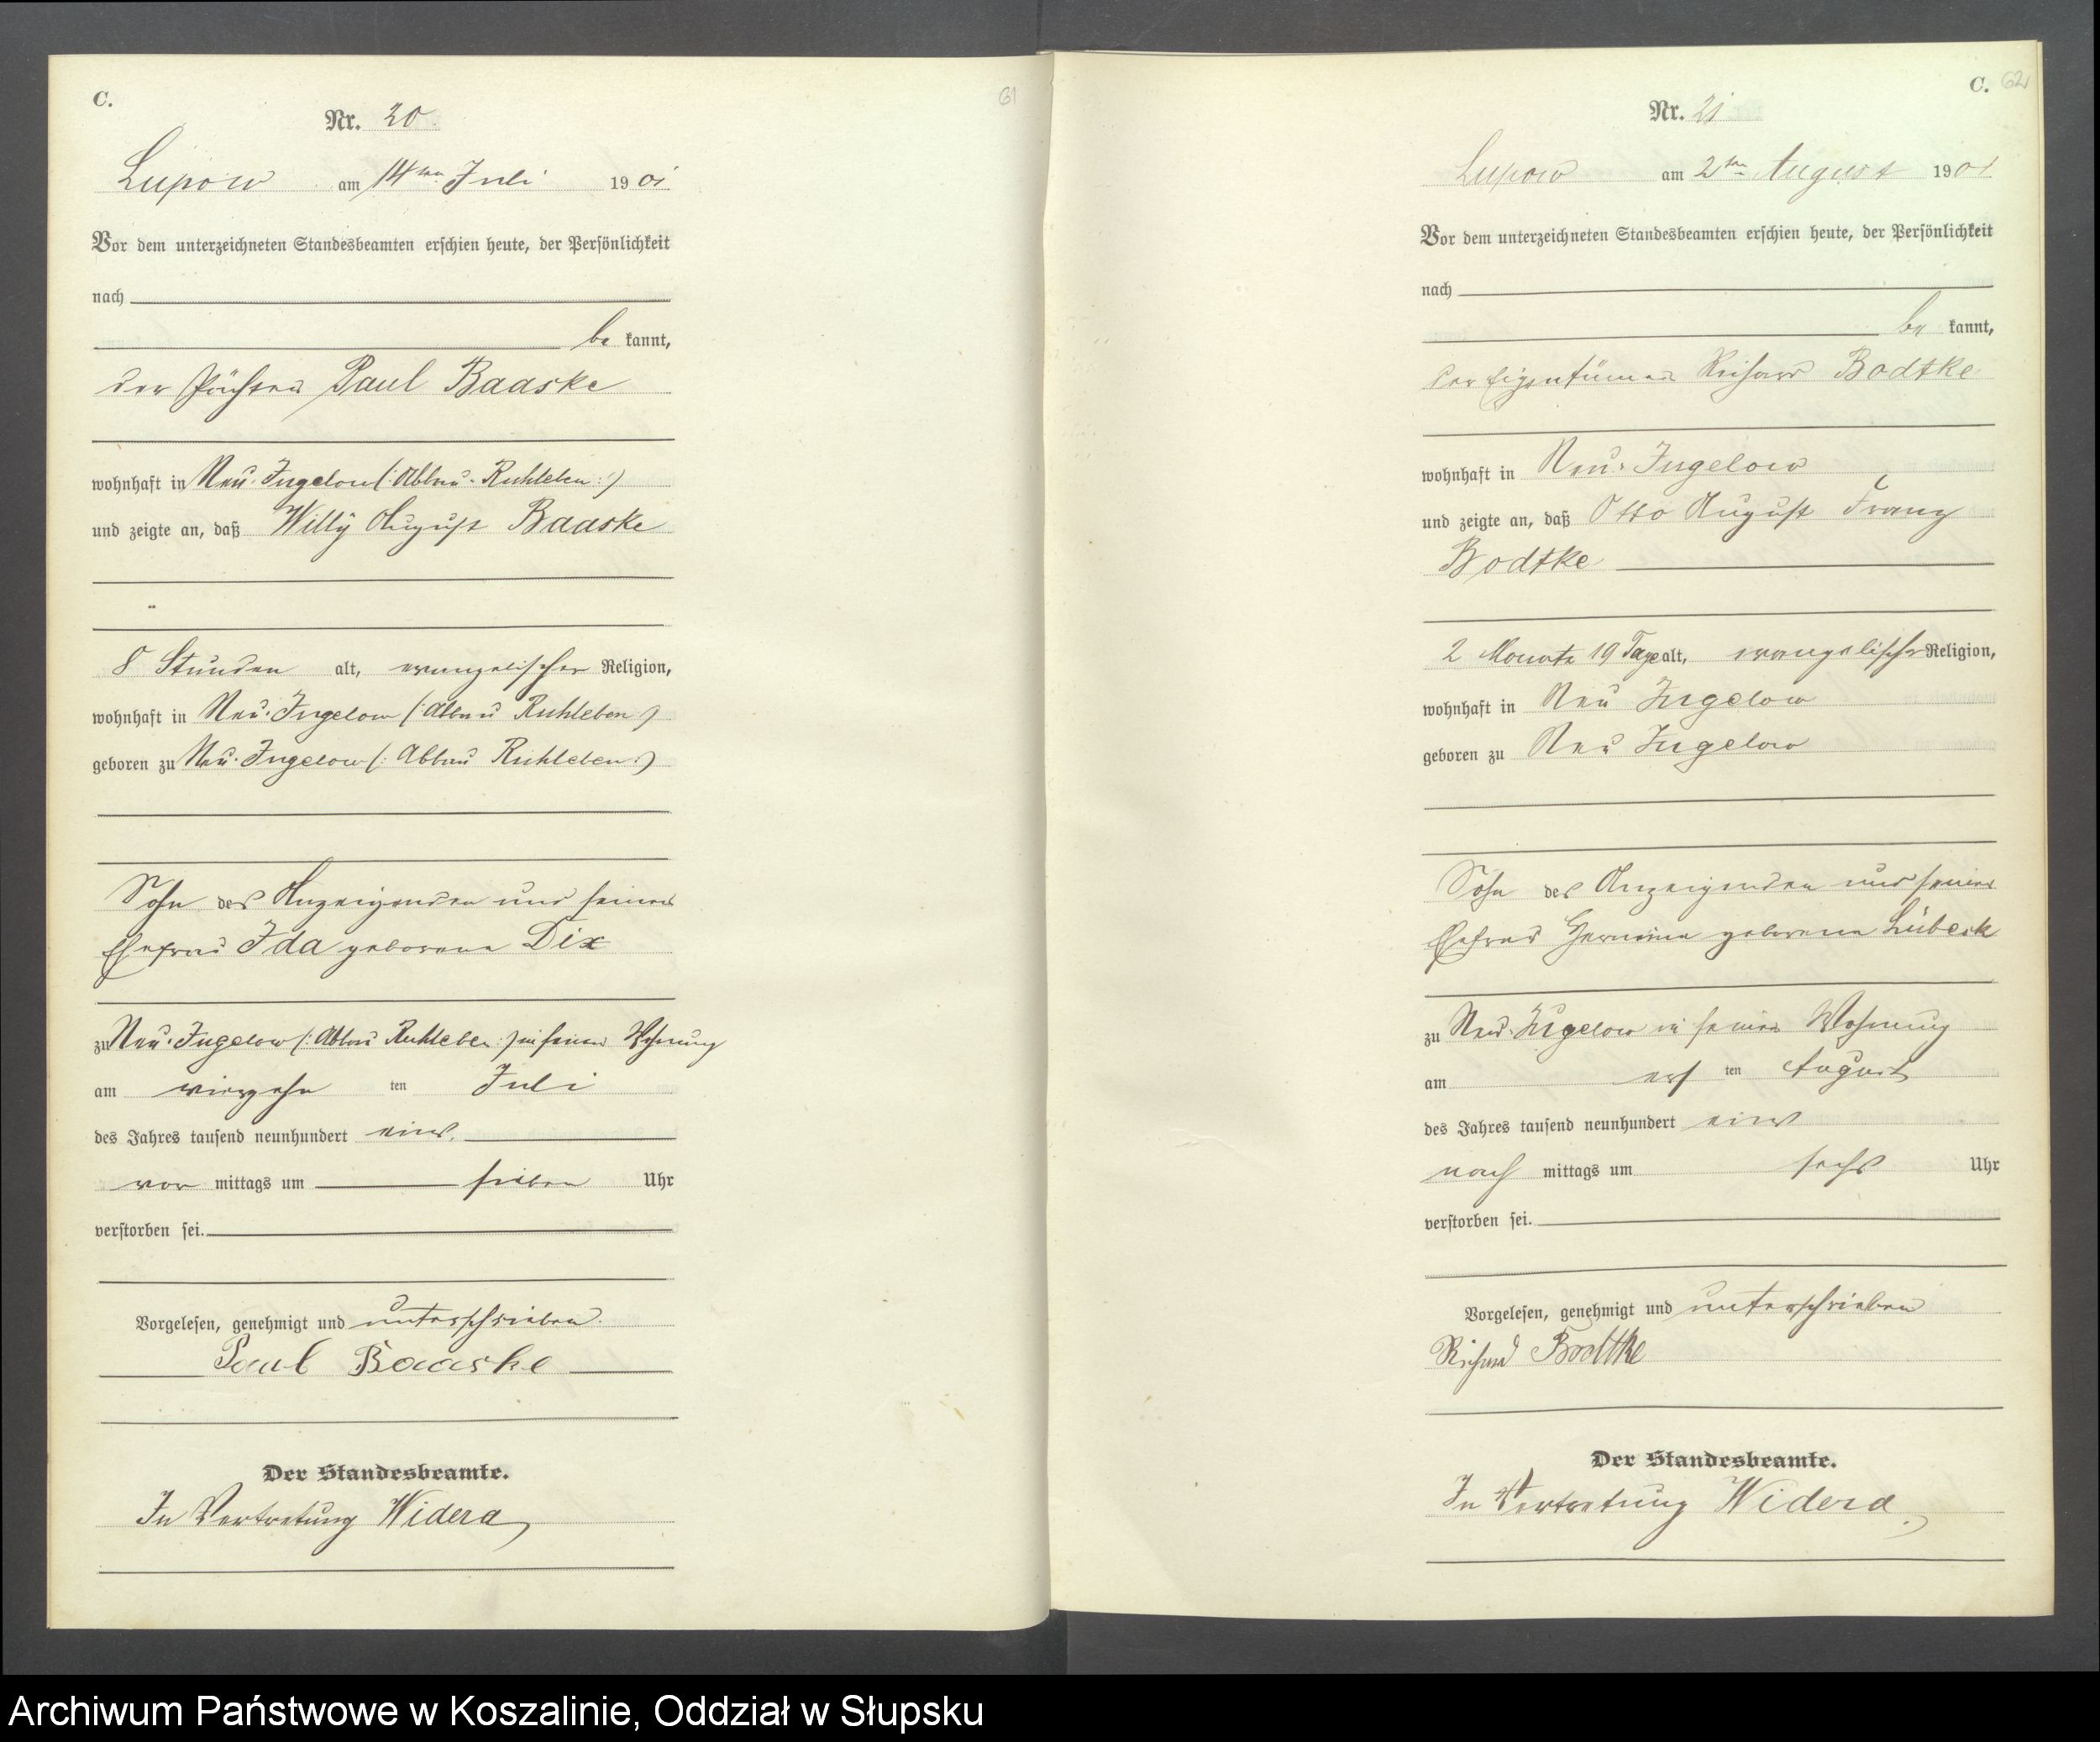 C.
61
Nr. 20.
Lupow am 14ten Juli 1901
Vor dem unterzeichneten Standesbeamten erschien heute, der Persönlichkeit
nach
be kannt,
der Pächter Paul Baaske
wohnhaft in Neu-Jugelow (: Abbau-Ruhleben :)
und zeigte an, daß Willÿ August Baaske
8 Stunden alt, evangelischer Religion,
wohnhaft in Neu-Jugelow (: Abbau Ruhleben :)
geboren zu Neu-Jugelow (: Abbau Ruhleben :)
Sohn des Anzeigenden und seiner
Ehefrau Ida geborene Dix
zu Neu-Jugelow (: Abbau Ruhleben :) in seiner Wohnung
am vierzehn ten Juli
des Jahres tausend neunhundert eins
vor mittags um sieben Uhr
verstorben sei.
Vorgelesen, genehmigt und unterschrieben.
Paul Baaske
Der Standesbeamte.
In Vertretung Widera
C. 62
Nr. 21
Lupow am 2ten August 1901
Vor dem unterzeichneten Standesbeamten erschien heute, der Persönlichkeit
nach
be kannt,
der Eigentümer Richard Bodtke
wohnhaft in Neu-Jugelow
und zeigte an, daß Otto August Franz
Bodtke
2 Monate 19 Tage alt, evangelischer Religion,
wohnhaft in Neu Jugelow
geboren zu Neu Jugelow
Sohn des Anzeigenden und seiner
Ehefrau Hermine geborene Lübeck
zu Neu-Jugelow in seiner Wohnung
am ers ten August
des Jahres tausend neunhundert eins
nach mittags um sechs Uhr
verstorben sei.
Vorgelesen, genehmigt und unterschrieben
Richard Bodtke
Der Standesbeamte.
In Vertretung Widera.
Archiwum Państwowe w Koszalinie, Oddział w Słupsku